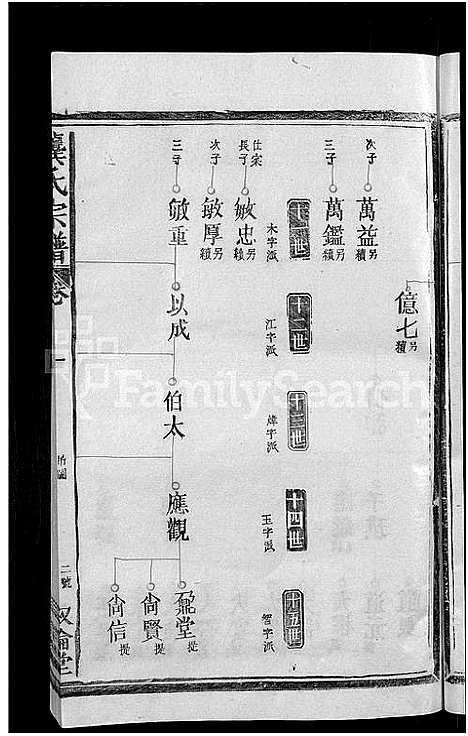 億七 另績
次子 萬益 另績
三子 萬鑑 另績
十一世 木字派
十二世 江字派
十三世 煒字派
十四世 玉字派
十五世 智字派
仕宗 長子 敏忠 另績
次子 敏厚 另績
三子 敏重
以成
伯太
應觀
鼐堂 提
尚賢 提
尚信 提
龔氏宗譜 卷一
二號
叙倫堂
FamilySearch